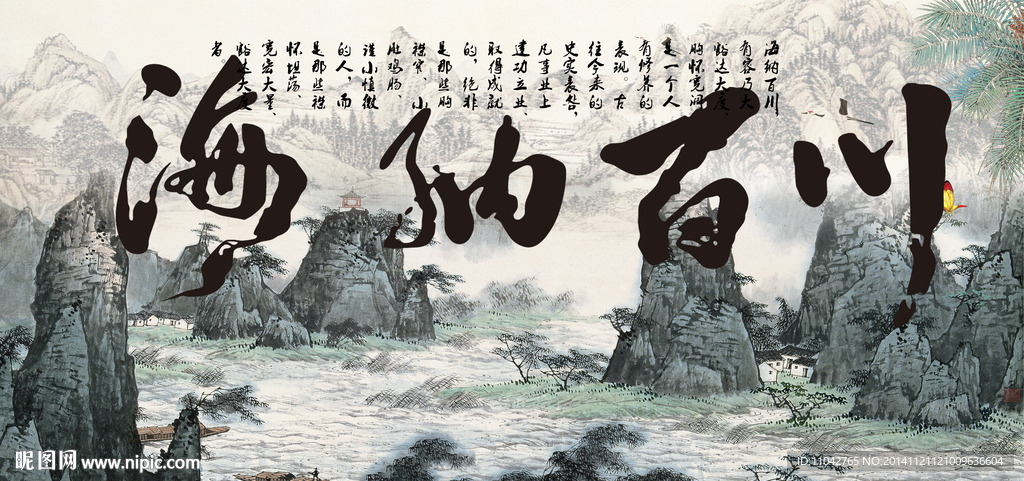 海纳百川
海纳百川
有容乃大
豁达大度、
胸怀宽阔
是一个人
有修养的
表现。古
往今来的
史实表
凡事业上
建功立业、
取得成就
的，绝非
是那些胸
襟窄、小
肚鸡肠、
谨小慎微
的人，而
是那些襟
怀坦荡、
宽宏大量、
豁达大度
者。
昵图网 www.nipic.com
ID:11042765 NO:20141121121009636604